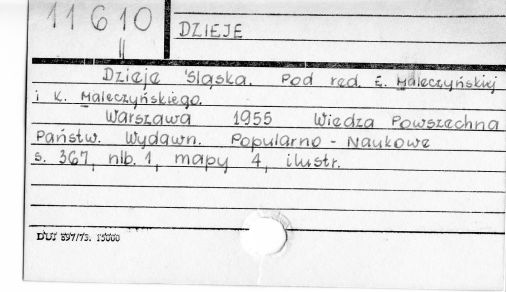 11610
II
DZIEJE
Dzieje Śląska. Pod red. E. Maleczyńskiej
i K. Maleczyńskiego.
Warszawa 1955 Wiedza Powszechna
Państw. Wydawn. Popularno - Naukowe
s. 367, nlb. 1, mapy 4, ilustr.
DUJ 897/73. 15000